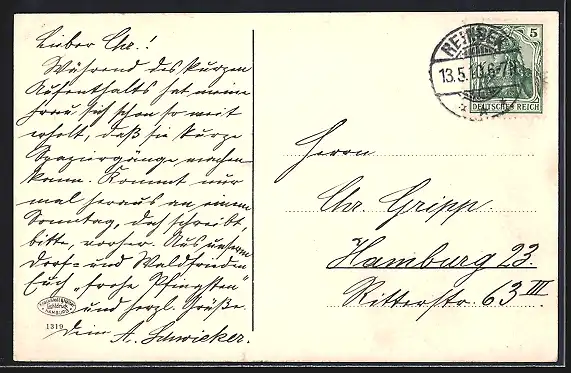 Lieber Chr.!
Während des kurzen
Aufenthalts hat meine
Frau sich schon so weit
erholt, daß sie kurze
Spaziergänge machen
kann. Kommt nur
mal heraus an einem
Sonntag, doch schreibt,
bitte, vorher. Aus unserm
Dorf- und Waldfrieden
Euch „frohe Pfingsten"
und herzl. Grüße.
Dein A. Schwieker.
HAMBURG
1319
REINBEK
13.5.10.6-7N
5
DEUTSCHES REICH
Herrn
Chr. Gripp.
Hamburg 23.
Ritterstr. 63 III